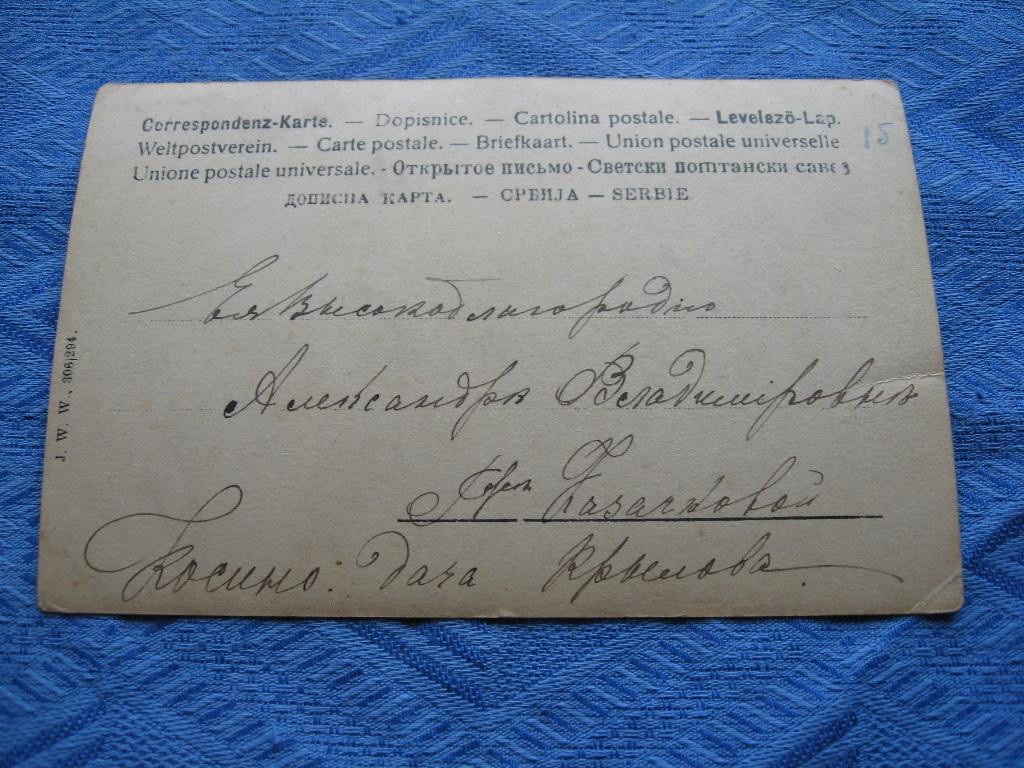 Correspondenz-Karte. — Dopisnice. — Cartolina postale. — Levelező-Lap.
Weltpostverein. — Carte postale. — Briefkaart. — Union postale universelle
Unione postale universale. - Открытое письмо - Светски поштански савез
ДОПИСНА КАРТА. — СРБИЈА — SERBIE
15
Ея Высокоблагородію
Александрѣ Владиміровнѣ
Казачковой
Косино. дача Крылова.
J. W. W., 306/294.